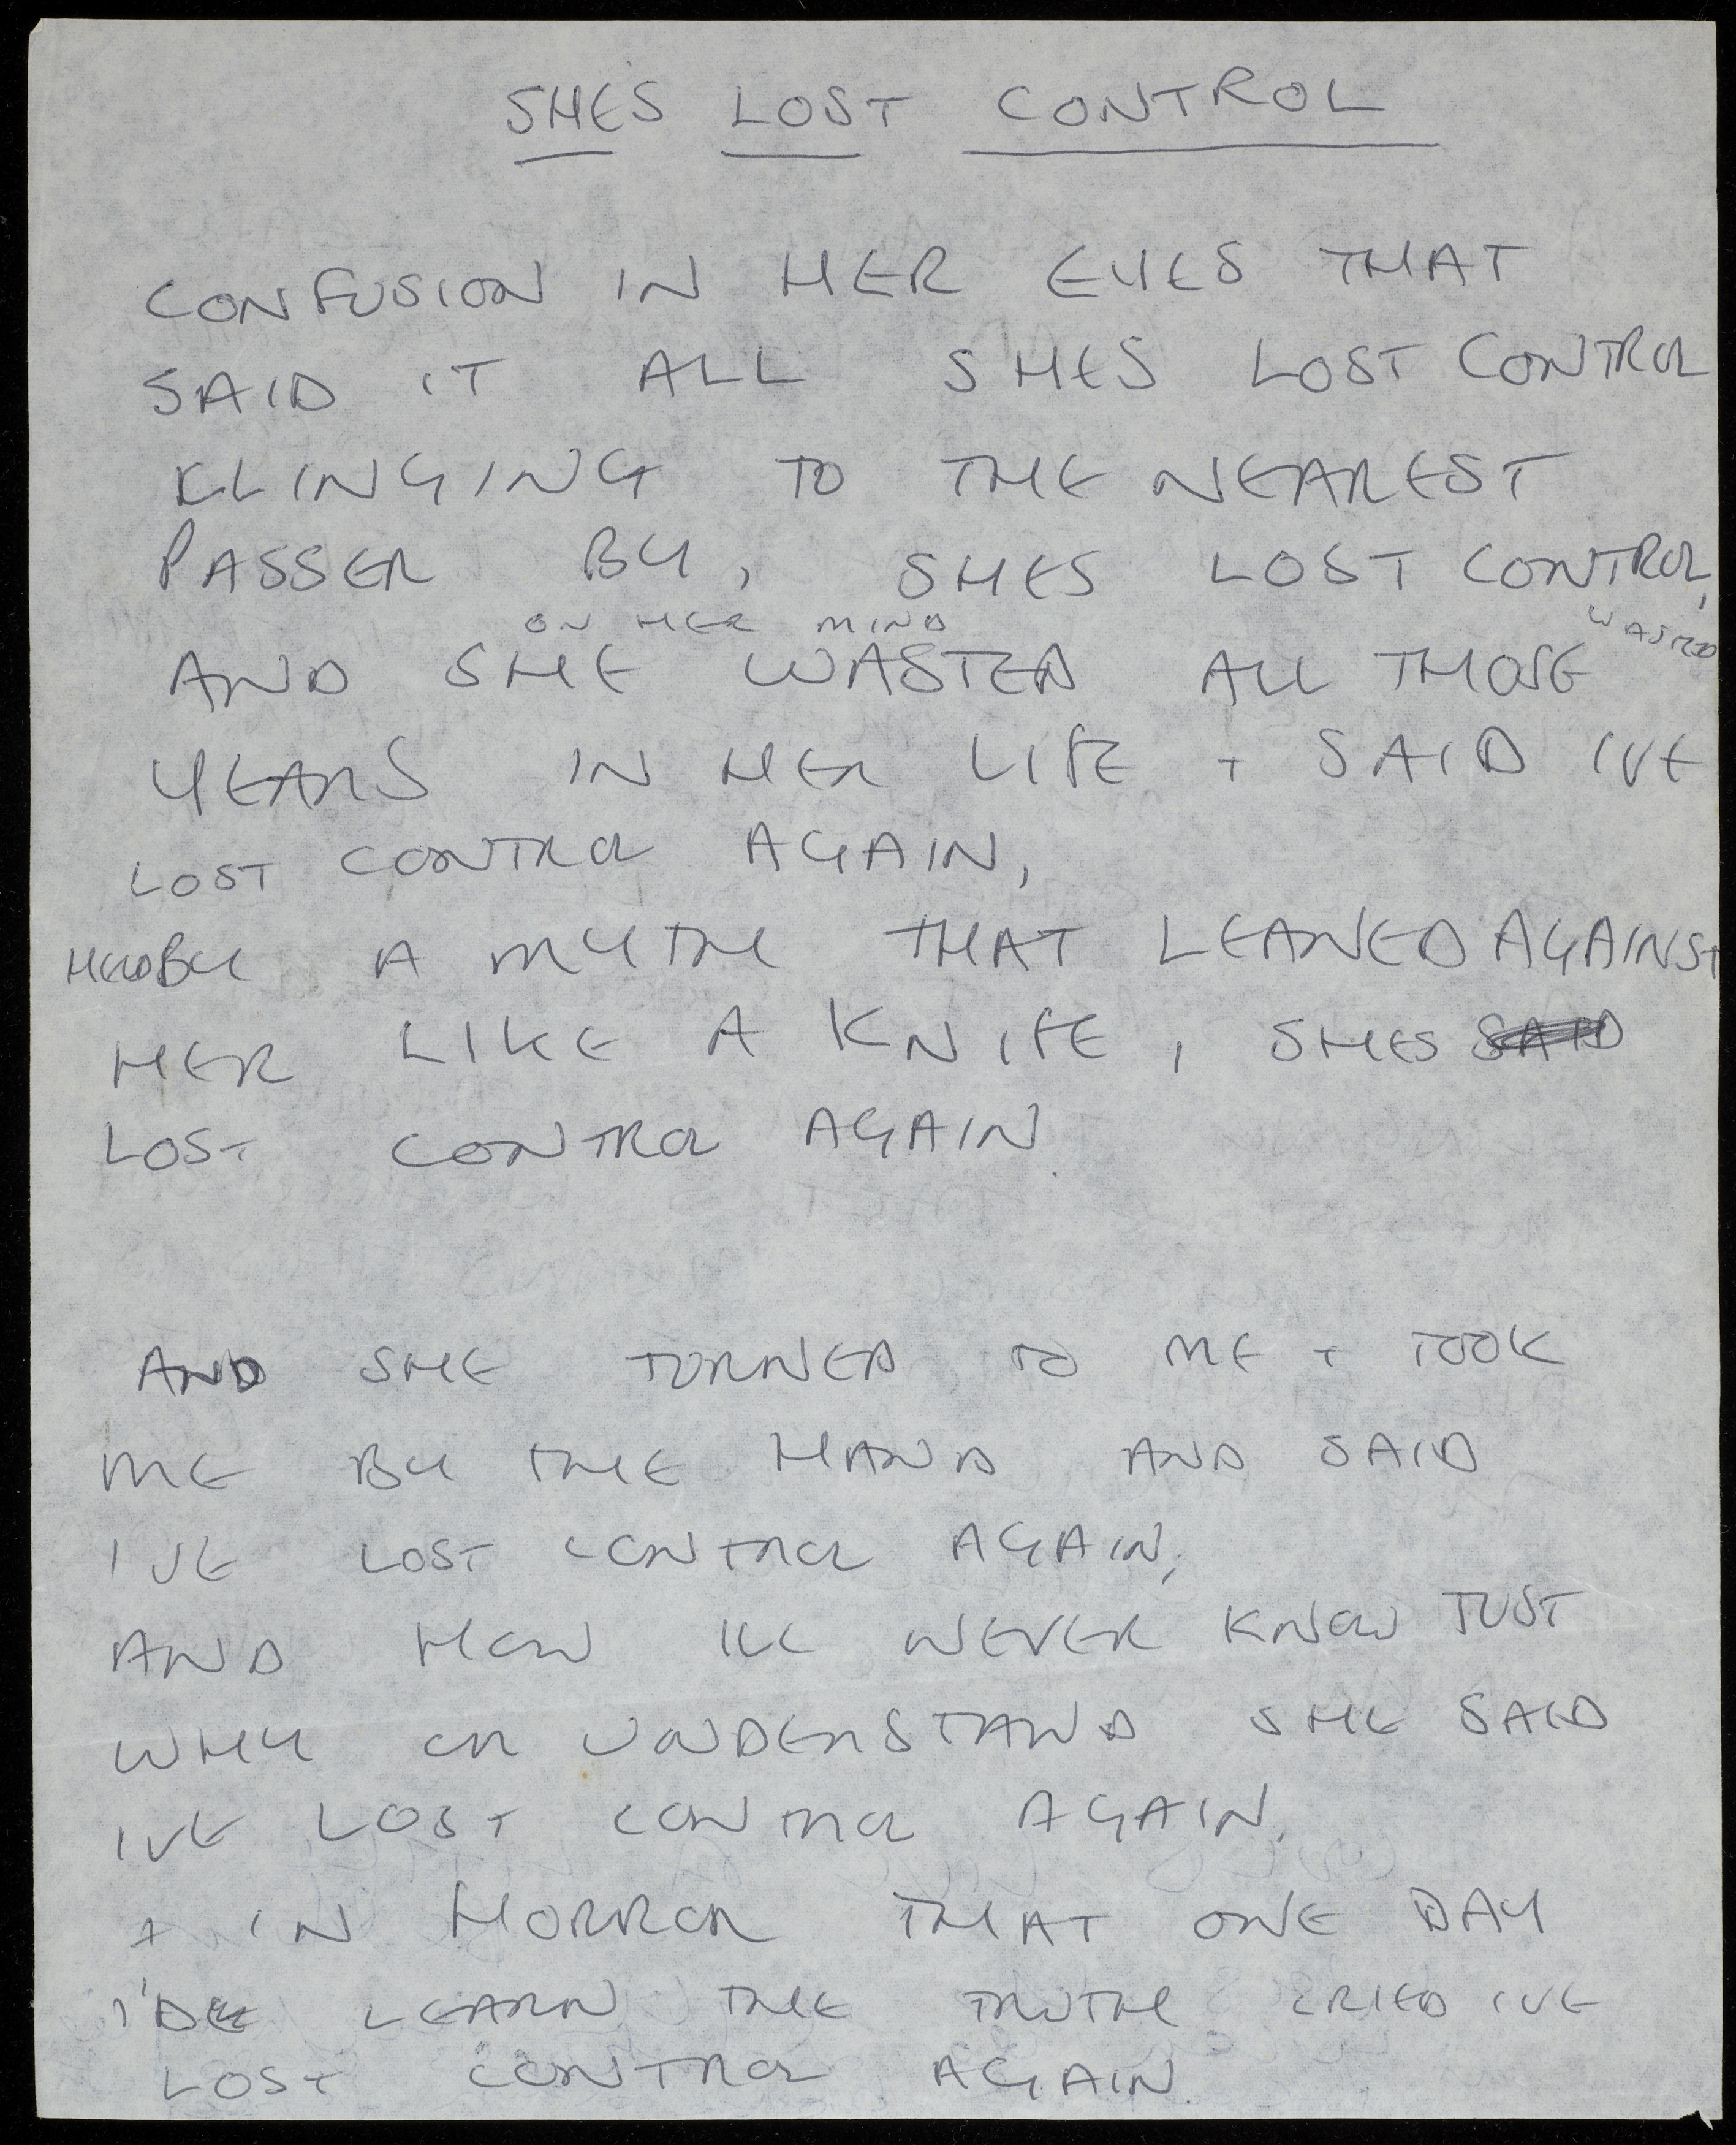 SHE'S LOST CONTROL
CONFUSION IN HER EYES THAT
SAID IT ALL SHES LOST CONTROL
KLINGING TO THE NEAREST
PASSER BY, SHES LOST CONTROL,
ON HER MIND WASTED
AND SHE WASTED ALL THOSE
YEARS IN HER LIFE + SAID IVE
LOST CONTROL AGAIN,
HELD BY A MYTH THAT LEANED AGAINST
HER LIKE A KNIFE, SHES SAID
LOST CONTROL AGAIN.
AND SHE TURNED TO ME + TOOK
ME BY THE HAND AND SAID
I'VE LOST CONTROL AGAIN,
AND HOW ILL NEVER KNOW JUST
WHY OR UNDERSTAND SHE SAID
IVE LOST CONTROL AGAIN.
+ IN HORROR THAT ONE DAY
I'DE LEARN THE TRUTH CRIED IVE
LOST CONTROL AGAIN.